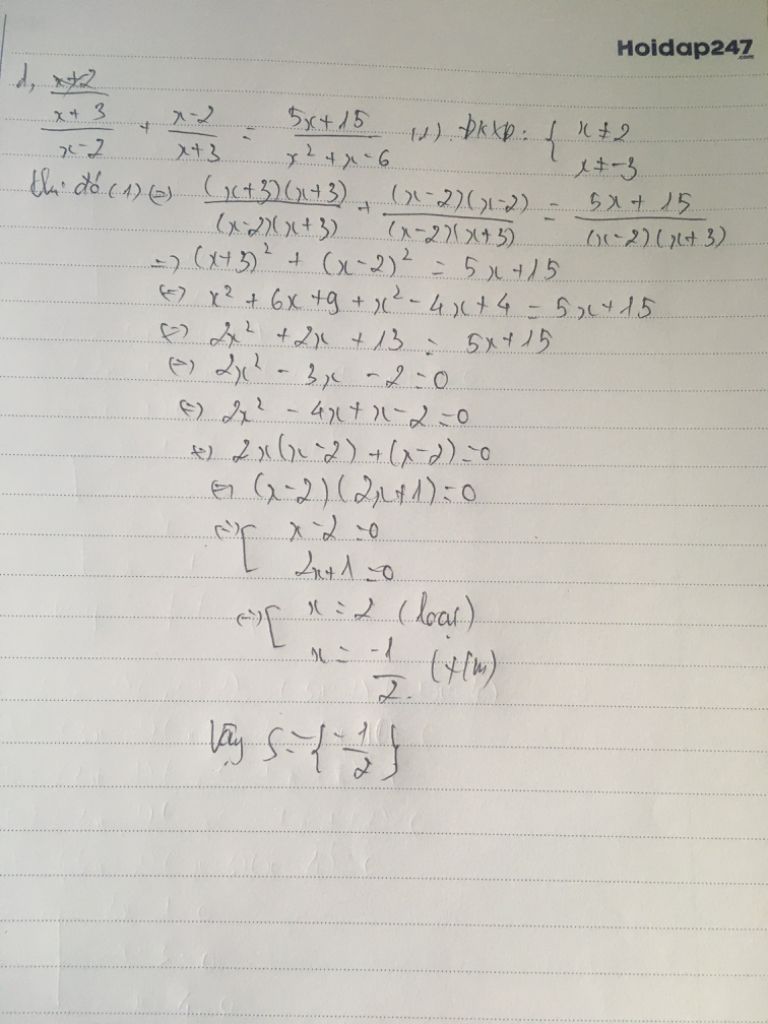 Hoidap247.com
d, (x+3)/(x-2) + (x-2)/(x+3) = (5x+15)/(x²+x-6) (1) ĐKXĐ: { x≠2
x≠-3
khi đó (1) (=) ((x+3)(x+3))/((x-2)(x+3)) + ((x-2)(x-2))/((x-2)(x+3)) = (5x+15)/((x-2)(x+3))
=) (x+3)² + (x-2)² = 5x+15
(=) x² + 6x +9 + x² - 4x + 4 = 5x+15
(=) 2x² + 2x + 13 = 5x+15
(=) 2x² - 3x - 2 = 0
(=) 2x² - 4x + x - 2 = 0
(=) 2x(x-2) + (x-2) = 0
(=) (x-2)(2x+1) = 0
(=) [ x-2 = 0
2x+1 = 0
(=) [ x = 2 (loại)
x = -1/2 (t/m)
Vậy S = {-1/2}